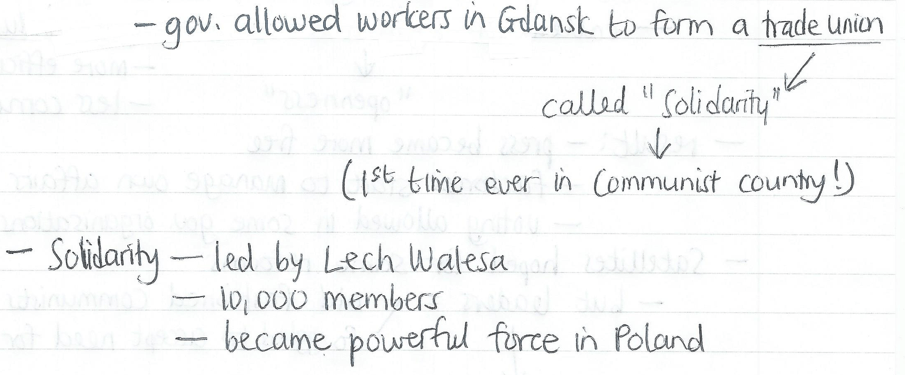 - gov. allowed workers in Gdansk to form a trade union
called "Solidarity"
(1st time ever in Communist country!)
- Solidarity - led by Lech Walesa
- 10,000 members
- became powerful force in Poland